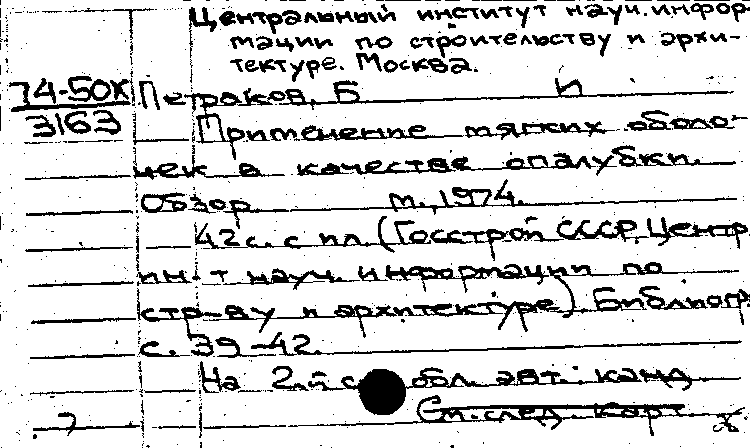 Центральный институт науч. информации по строительству и архи-
тектуре. Москва.
74-50К Петраков, Б И
3163 Применение мягких оболо-
чек в качестве опалубки.
Обзор. М., 1974.
42 с. с ил. (Госстрой СССР. Центр.
ин-т науч. информации по
стр-ву и архитектуре). Библиогр.
с. 39-42.
На 2-й с. обл. авт.: канд.
См. след. карт.